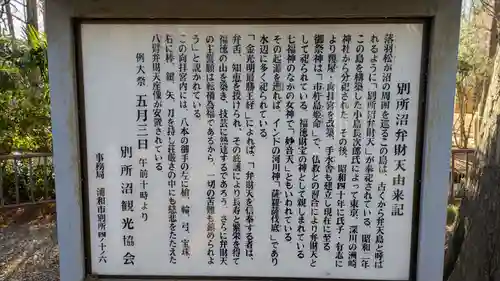 別所沼弁財天由来記
落羽松が沼の周囲を巡るこの島は、古くから弁天島と呼ば
れるように「別所沼弁財天」が奉祀されている。昭和二年
この島を構築した小島長次郎氏によって東京、深川の洲崎
神社から分祀された。その後、昭和四十年に氏子・有志に
より鞘屋・向拝宮を改築、手水舎も建立し現在に至る
御祭神は「市杵島姫命」で、仏教との習合により弁財天と
して祀られている。福徳財宝の神として親しまれている
七福神のなかの女神で「妙音天」ともいわれている。
その起源を遡れば、インドの河川神「薩羅薩伐底」であり
水辺に多く祀られている。
「金光明最勝王経」によれば、「弁財天を信奉する者は、
弁舌、知恵を授けられ、その庇護により長寿と繁栄を得て
福徳の山を築き、技芸に熟達するであろう。さらに弁財天
の主誓願は転禍為福であるから、一切の苦難を鎮められよ
う」と説かれている。
この向拝宮内には、八本の御手の左に槍、輪、弓、宝珠、
右に棒、鍵、矢、刀を持し荘厳さの中にも慈悲をたたえた
八臂弁財天座像が安置されている。
例大祭 五月三日 午前十時より
別所沼観光協会
事務局 浦和市別所四ノ十ノ六